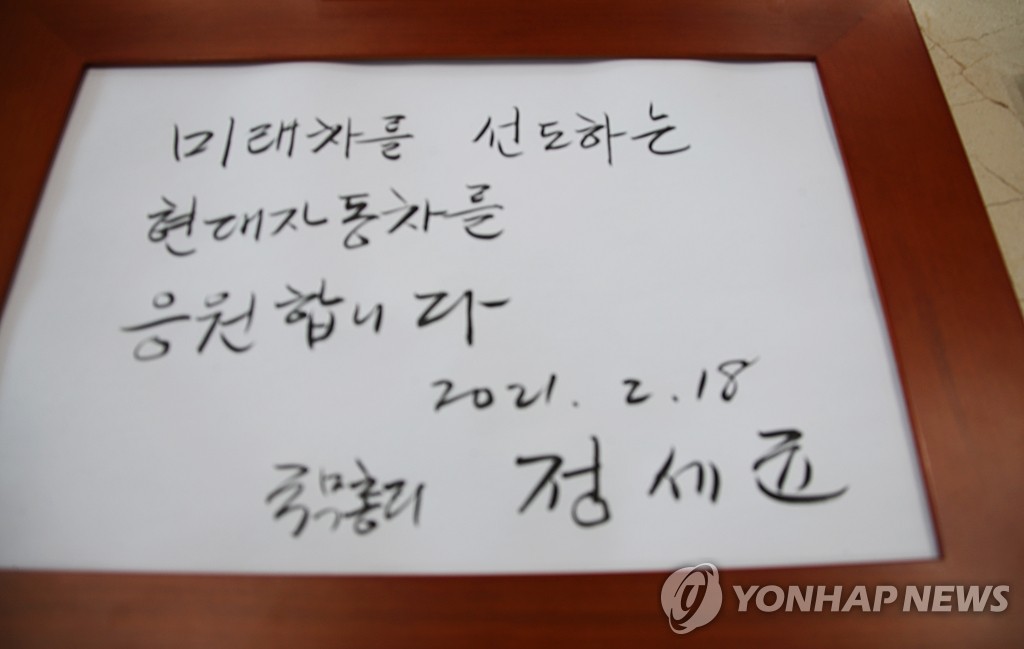 미래차를 선도하는
현대자동차를
응원합니다
2021. 2. 18
국무총리 정세균
YONHAP NEWS